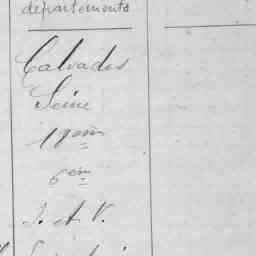 departements
Calvados
Seine
18em
6em
I. et V.